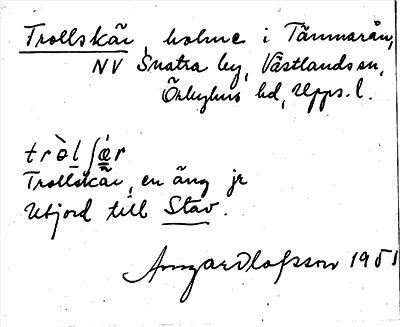 Trollskär, holme i Tämnarån,
NV Snatra by, Västlands sn,
Örbyhus hd, Upps. l.
tròlʃǽr
Trollskär, en äng
Utjord till Stav.
Olofsson 1951